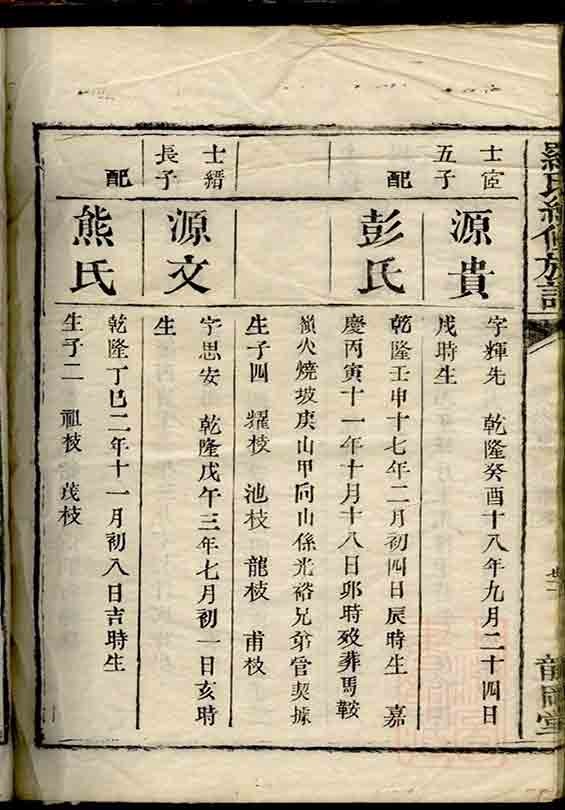 羅氏續修族譜
龍門堂
士宦
五子
源貴
字輝先 乾隆癸酉十八年九月二十四日
戌時生
配
彭氏
乾隆壬申十七年二月初四日辰時生 嘉
慶丙寅十一年十月十八日卯時歿葬馬鞍
嶺火燒坡庚山甲向山係光裕兄弟管契據
生子四 耀枝 池枝 龍枝 甫枝
士縉
長子
源文
字思安 乾隆戊午三年七月初一日亥時
生
配
熊氏
乾隆丁巳二年十一月初八日吉時生
生子二 祖枝 茂枝